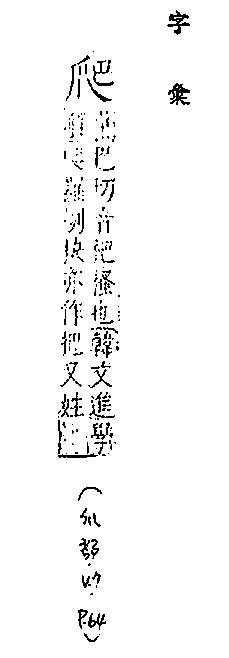 字彙
爬
蒲巴切音 搔也韓文進學
解爬羅剔抉亦作把又姓
P.64